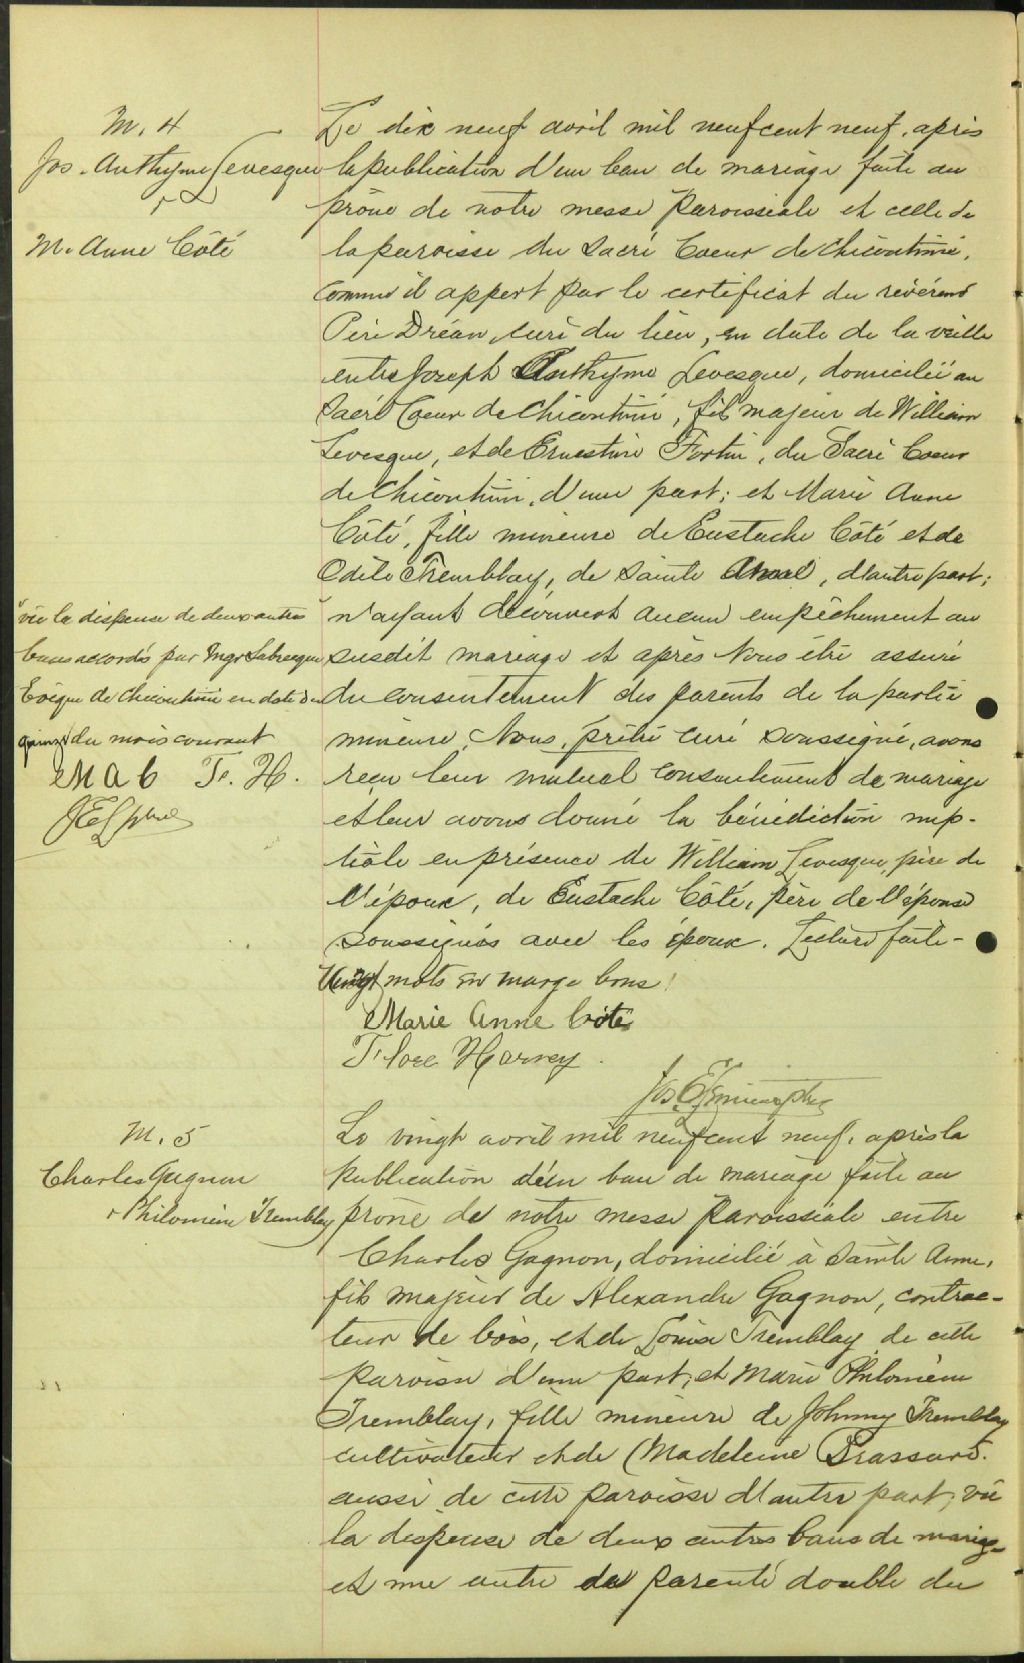 M. 4
Jos. Anthyme Levesque
&
M. Anne Côté
Le dix neuf avril mil neufcent neuf, après
la publication d'un ban de mariage faite au
prône de notre messe paroissiale et celle de
la paroisse du Sacré Coeur de Chicoutimi,
comme il appert par le certificat du révérend
Père Dréan, curé du lieu, en date de la veille
entre Joseph Anthyme Levesque, domicilié au
Sacré Coeur de Chicoutimi, fils majeur de William
Levesque, et de Ernestine Fortin, du Sacré Coeur
de Chicoutimi, d'une part; et Marie Anne
Côté, fille mineure de Eustache Côté et de
Odile Tremblay, de Sainte Anne, d'autre part;
"vu la dispense de deux autres
bans accordés par Mgr Labrecque
Evêque de Chicoutimi en date du
quinze du mois courant
M A C F. H.
n'ayant découvert aucun empêchement au
susdit mariage et après Nous être assuré
du consentement des parents de la partie
mineure, Nous, prêtre curé soussigné, avons
reçu leur mutuel consentement de mariage
et leur avons donné la bénédiction nup-
tiale en présence de William Levesque, père de
l'époux, de Eustache Côté, père de l'épouse
soussignés avec les époux. Lecture faite-
Vingt mots en marge bons!
Marie Anne Côté
Flore Harvey.
M. 5
Charles Gagnon
& Philomène Tremblay
Le vingt avril mil neufcent neuf, après la
publication d'un ban de mariage faite au
prône de notre messe paroissiale entre
Charles Gagnon, domicilié à Sainte Anne,
fils majeur de Alexandre Gagnon, contrac-
teur de bois, et de Louise Tremblay de cette
paroisse d'une part, et Marie Philomène
Tremblay, fille mineure de Johnny Tremblay
cultivateur et de Madeleine Brassard.
aussi de cette paroisse d'autre part, vu
la dispense de deux autres bans de mariage
et une autre de parenté double du